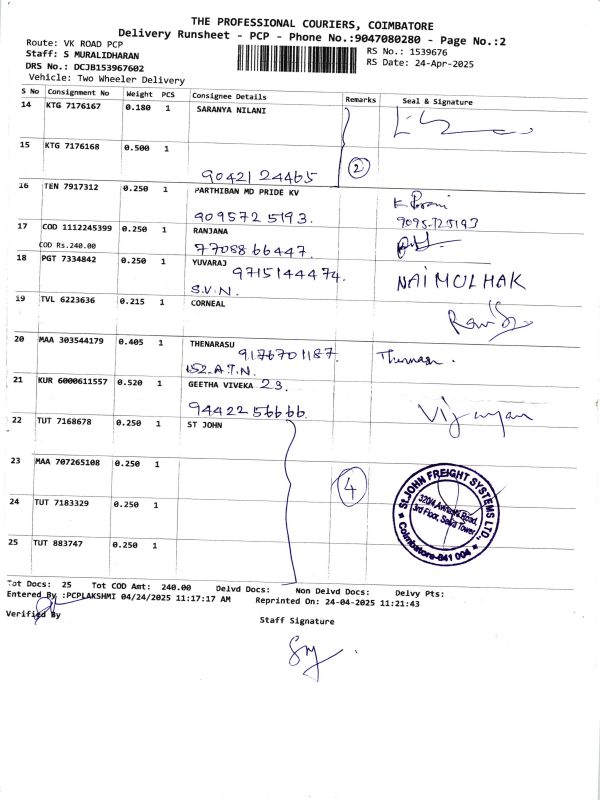 THE PROFESSIONAL COURIERS, COIMBATORE
Delivery Runsheet - PCP - Phone No.:9047080280 - Page No.:2
Route: VK ROAD PCP RS No.: 1539676
Staff: S MURALIDHARAN RS Date: 24-Apr-2025
DRS No.: DCJB153967602
Vehicle: Two Wheeler Delivery
S No Consignment No Weight PCS Consignee Details Remarks Seal & Signature
14 KTG 7176167 0.180 1 SARANYA NILANI
15 KTG 7176168 0.500 1
9042124465 2
16 TEN 7917312 0.250 1 PARTHIBAN MD PRIDE KV
9095725193. 9095725193
17 COD 1112245399 0.250 1 RANJANA
COD Rs.240.00 7708866447.
18 PGT 7334842 0.250 1 YUVARAJ 9715144474. NAIMULHAK
S.V.N.
19 TVL 6223636 0.215 1 CORNEAL
20 MAA 303544179 0.405 1 THENARASU
9176701187.
152.A.T.N.
21 KUR 6000611557 0.520 1 GEETHA VIVEKA 23.
9442256666. Vijayan
22 TUT 7168678 0.250 1 ST JOHN
23 MAA 707265108 0.250 1
4
24 TUT 7183329 0.250 1
25 TUT 883747 0.250 1
St.JOHN FREIGHT SYSTEMS LTD.
3rd Floor,
Coimbatore-641 004
Tot Docs: 25 Tot COD Amt: 240.00 Delvd Docs: Non Delvd Docs: Delvy Pts:
Entered By :PCPLAKSHMI 04/24/2025 11:17:17 AM Reprinted On: 24-04-2025 11:21:43
Verified By
Staff Signature